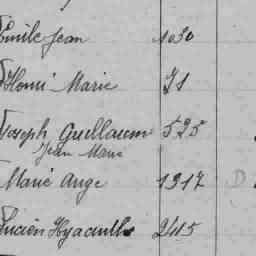 Emile Jean 1030
Henri Marie 71
Joseph Guillaume 525
Jean Marie
Marie Ange 1317 D
Lucien Hyacinthe 2415